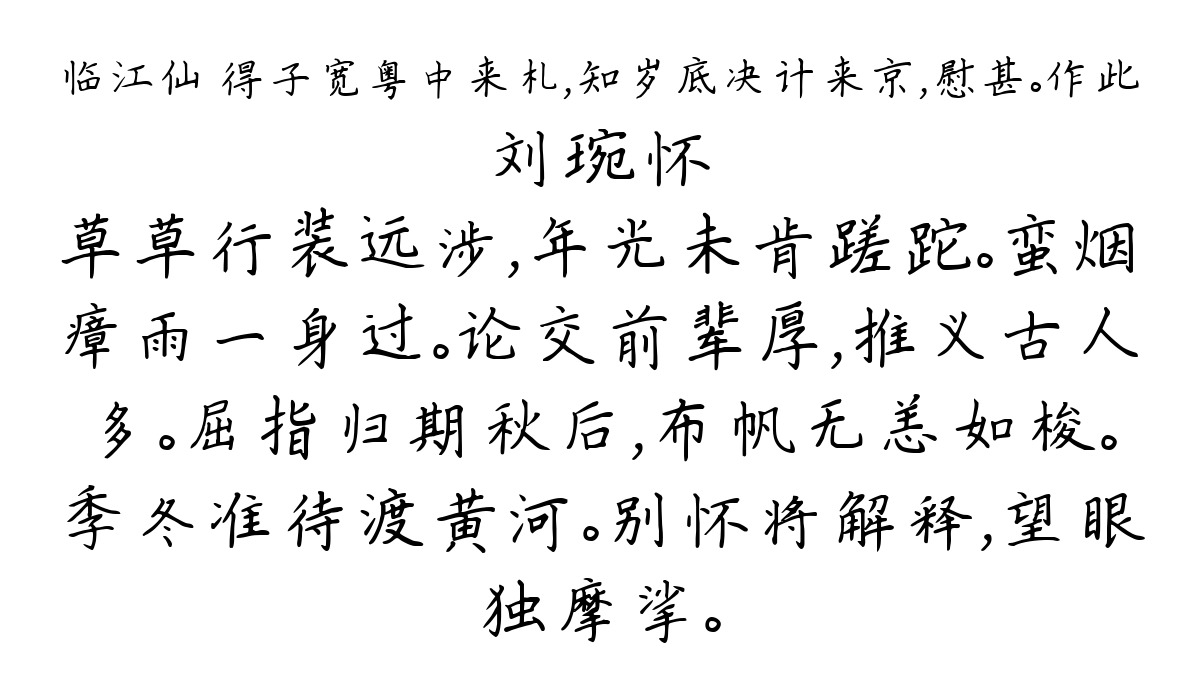 临江仙 得子宽粤中来札,知岁底决计来京,慰甚。作此
刘琬怀
草草行装远涉,年光未肯蹉跎。蛮烟
瘴雨一身过。论交前辈厚,推义古人
多。屈指归期秋后,布帆无恙如梭。
季冬准待渡黄河。别怀将解释,望眼
独摩挲。